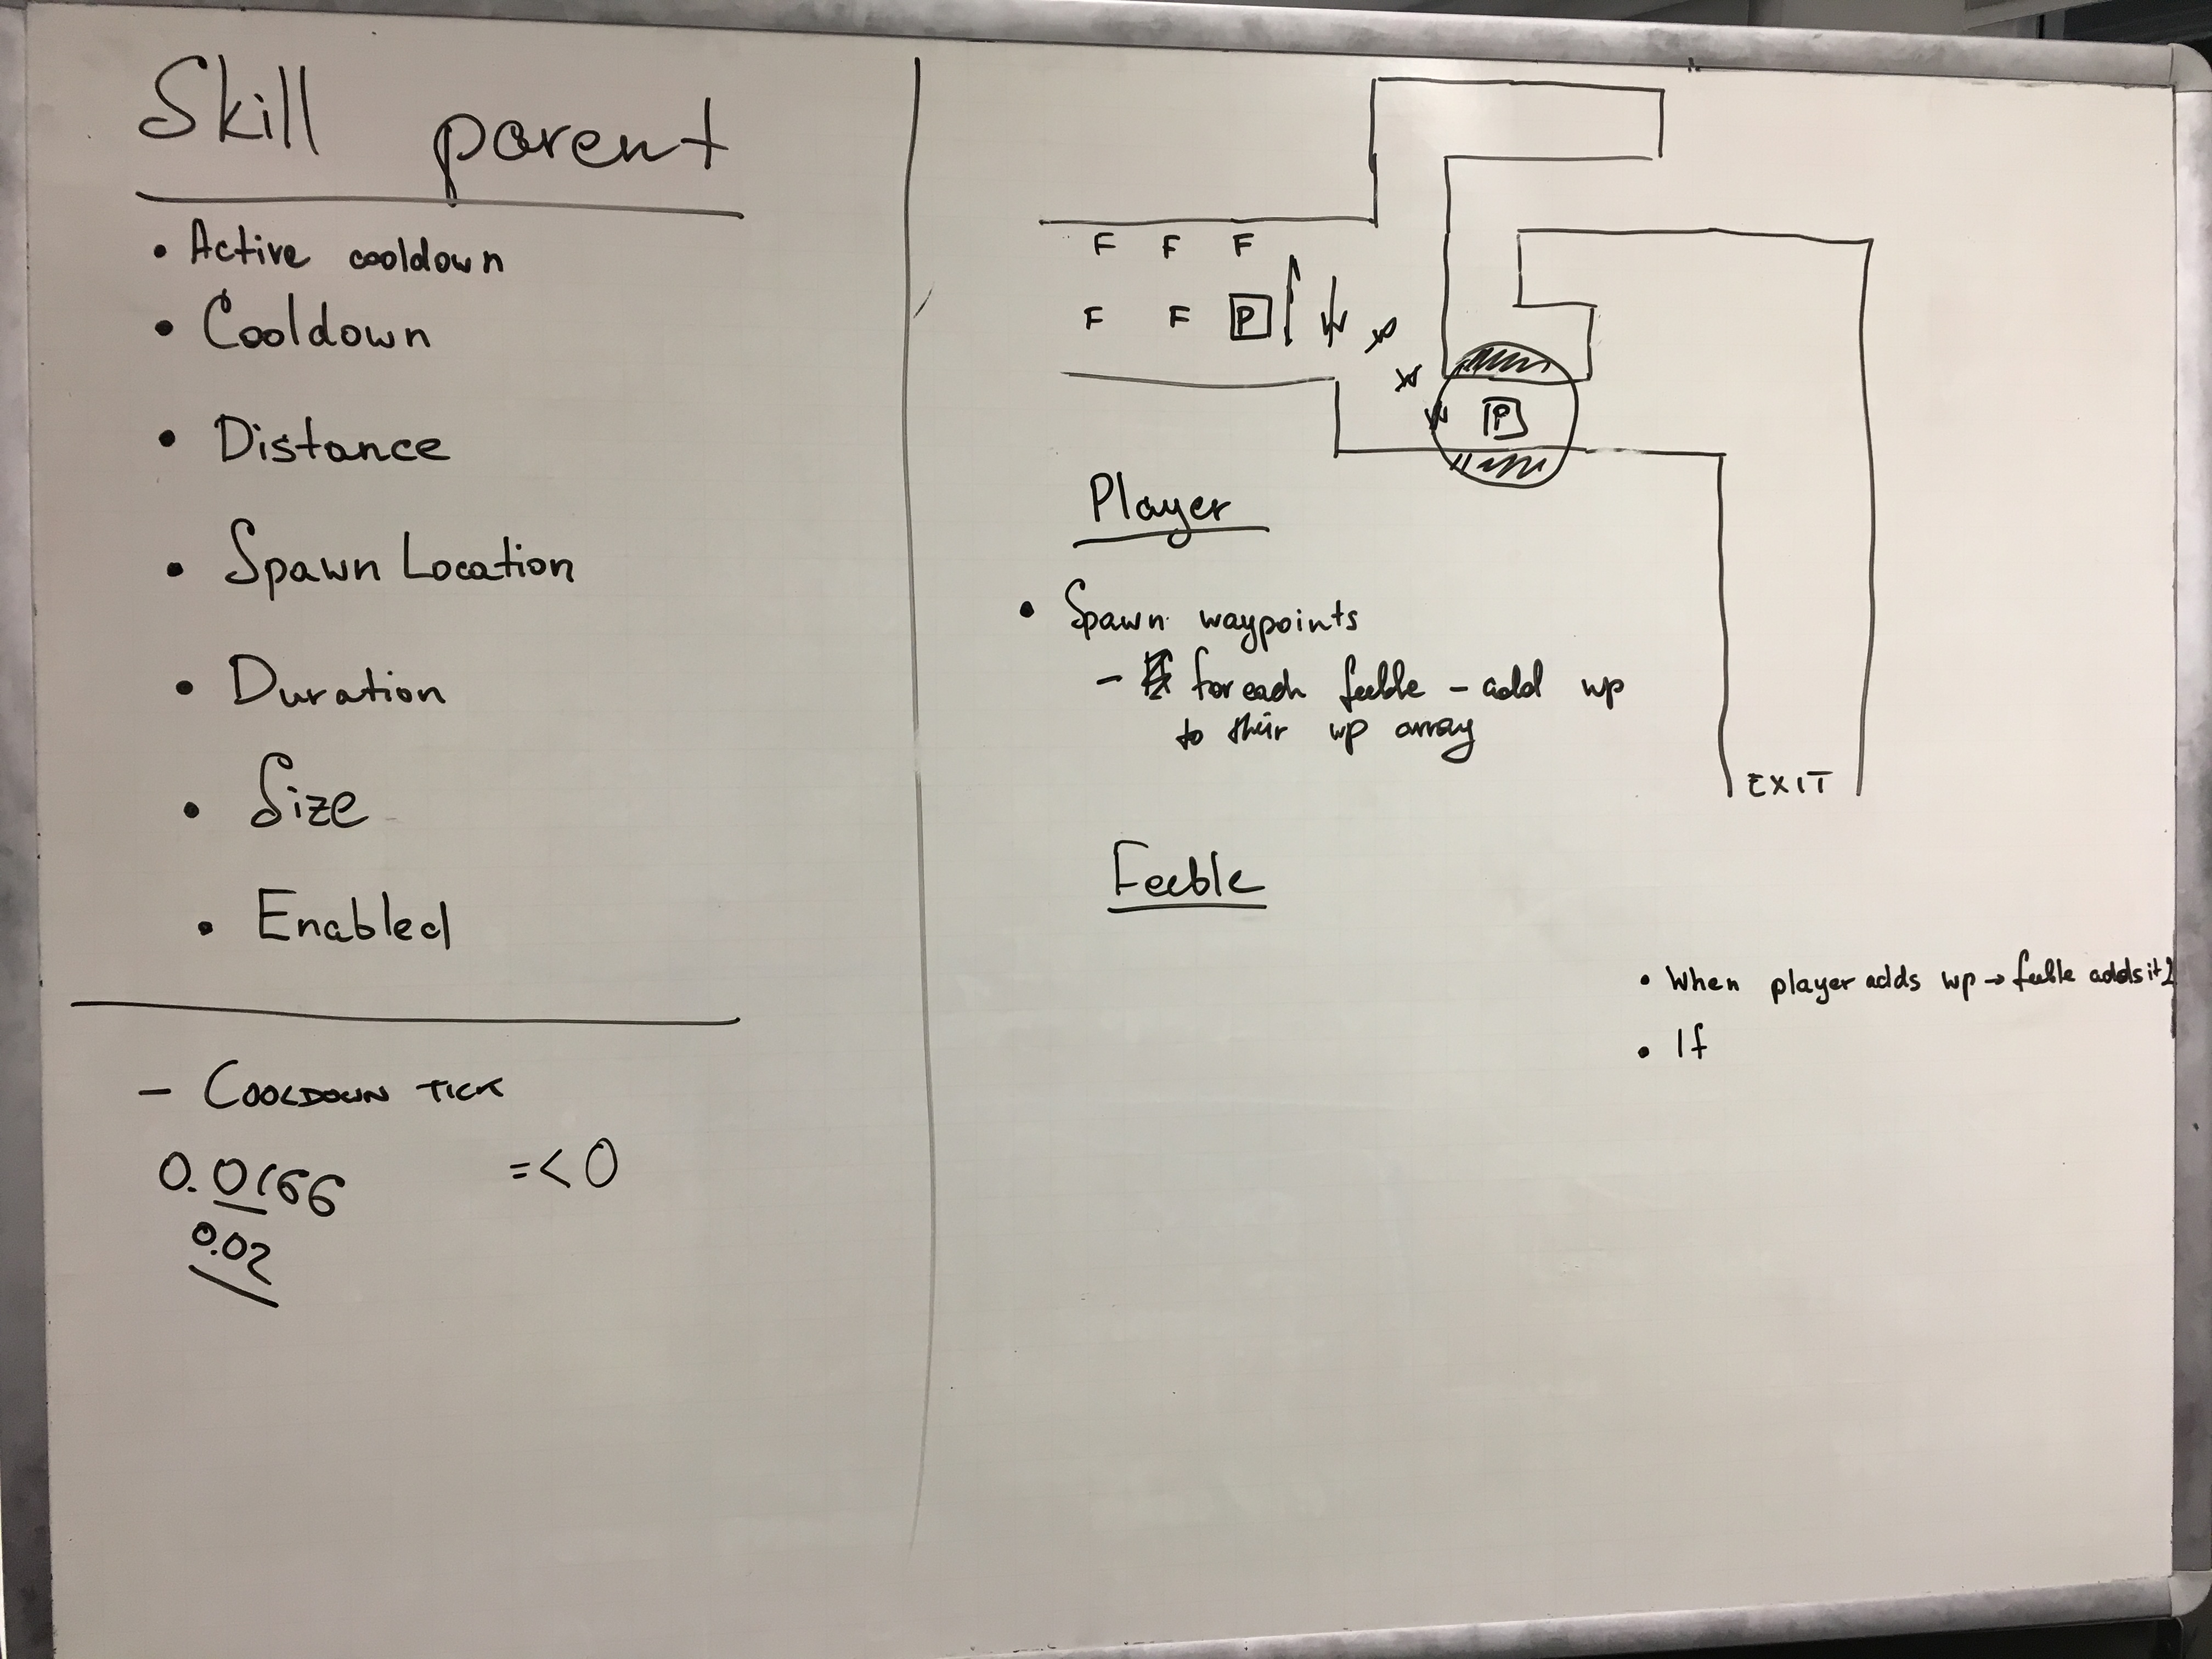 Skill parent
• Active cooldown
• Cooldown
• Distance
• Spawn Location
• Duration
• Size
• Enabled
- COOLDOWN TICK
0.0166 =< 0
0.02
F F F
F F P
P
EXIT
Player
• Spawn waypoints
- for each feeble - add wp
to their wp array
Feeble
• When player adds wp → feeble adds it
• If